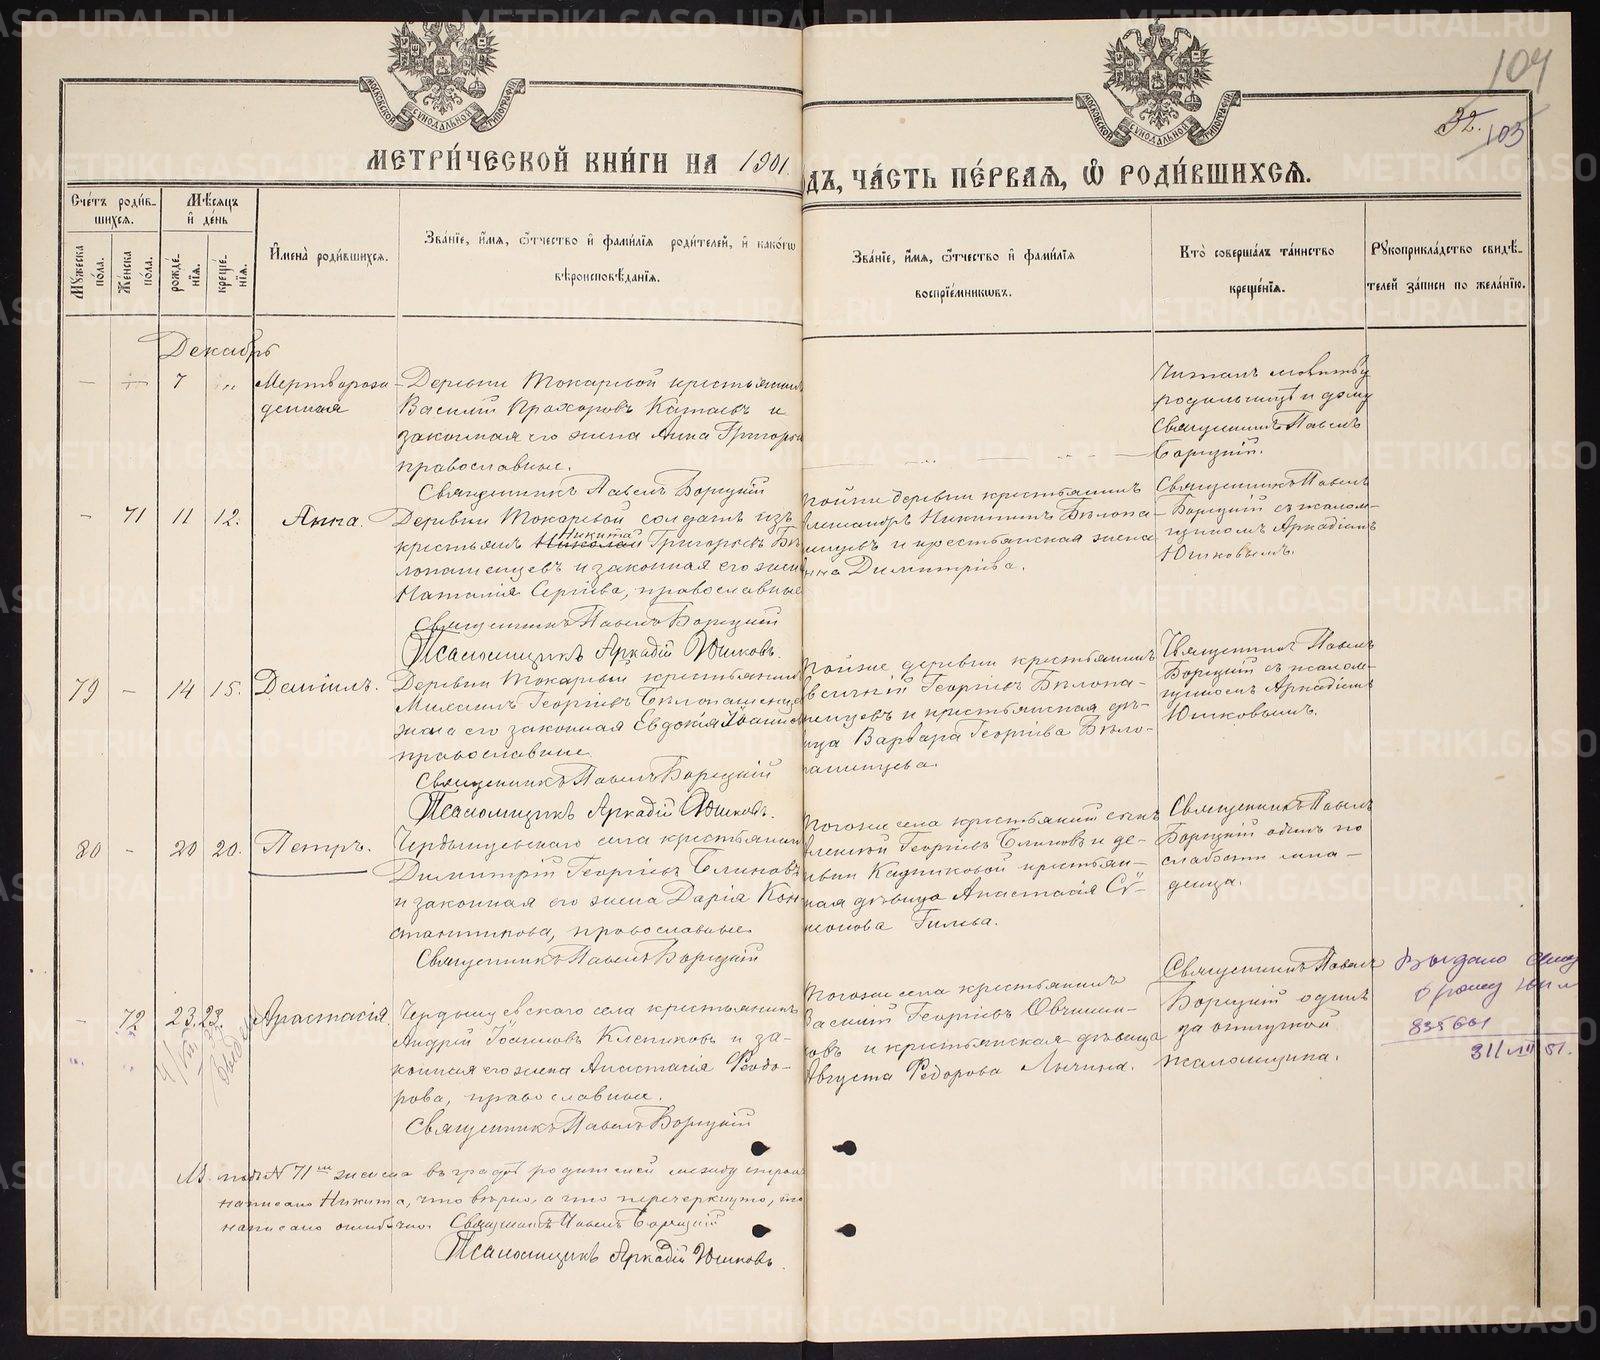 104
32.
103
МОСКОВСКОЙ СУНОДАЛЬНОЙ ТИПОГРАФІИ
МОСКОВСКОЙ СУНОДАЛЬНОЙ ТИПОГРАФІИ
МЕТРИ́ЧЕСКОЙ КНИ́ГИ НА 1901.
ДЪ, ЧА́СТЬ ПЕ́РВАѦ, Ѽ РОДИ́ВШИХСѦ.
Сче́тъ роди́в-
шихсѧ.
Мѣ́сѧцъ
и҆ де́нь
Мꙋ́жеска
по́ла.
Же́нска
по́ла.
рожде́-
нїѧ.
креще́-
нїѧ.
И҆мена̀ роди́вшихсѧ.
Зва́нїе, и҆́мѧ, ѻ҆́тчество и҆ фами́лїѧ роди́телей, и҆ како́гѡ
вѣроисповѣ́данїѧ.
Зва́нїе, и҆́мѧ, ѻ҆́тчество и҆ фами́лїѧ
воспрїе́мникѡвъ.
Кто̀ соверша́лъ та́инство
креще́нїѧ.
Рꙋкоприкла́дство свидѣ́-
телей за́писи по жела́нїю.
Декабрь
7
Мертворож-
денная
Деревни Токаревой крестьянинъ
Василій Прохоровъ Катаевъ и
законная его жена Анна Григорьева
православные.
Священникъ Павелъ Борецкій
Читалъ молитву
родильницѣ и дому
Священникъ Павелъ
Борецкій.
71 11 12. Анна.
Деревни Токаревой солдатъ изъ
Никита
крестьянъ Николай Григорьевъ Бѣ-
лопашенцевъ и законная его жена
Наталія Сергіева, православные
Священникъ Павелъ Борецкій
Псаломщикъ Аркадій Юшковъ.
Тойже деревни крестьянинъ
Александръ Никитинъ Бѣлопа-
шенцевъ и крестьянская жена
Анна Димитріева.
Священникъ Павелъ
Борецкій съ псалом-
щикомъ Аркадіемъ
Юшковымъ.
79 - 14 15. Даніилъ.
Деревни Токаревой крестьянинъ
Михаилъ Георгіевъ Бѣлопашенцевъ
жена его законная Евдокія Іоаннова
православные
Священникъ Павелъ Борецкій
Псаломщикъ Аркадій Юшковъ.
Тойже деревни крестьянинъ
Георгіевъ Бѣлопа-
шенцевъ и крестьянская дѣ-
вица Варвара Георгіева Бѣло-
пашенцева.
Священникъ Павелъ
Борецкій съ псалом-
щикомъ Аркадіемъ
Юшковымъ.
80 - 20 20. Петръ.
Чердынцевскаго села крестьянинъ
Димитрій Георгіевъ Блиновъ
и законная его жена Дарія Кон-
стантинова, православные
Священникъ Павелъ Борецкій
Тогоже села крестьянскій сынъ
Алексій Георгіевъ Блиновъ и де-
ревни Кадниковой крестьян-
ская дѣвица Анастасія Сѵ-
меонова Гилева.
Священникъ Павелъ
Борецкій одинъ по
слабости мла-
денца.
- 72 23. 23. Анастасія
Чердынцевскаго села крестьянинъ
Андрей Іоакимовъ Клепиковъ и за-
конная его жена Анастасія Ѳеодо-
рова, православные.
Священникъ Павелъ Борецкій
Тогоже села крестьянинъ
Василій Георгіевъ Овчинни-
ковъ и крестьянская дѣвица
Августа Ѳедорова Лычина.
Священникъ Павелъ
Борецкій одинъ
за отлучкой
псаломщика.
Выдано
835601
31/VII 51.
NB. подъ № 71мъ женска въ графѣ родителей между строкъ
написано Никита, что вѣрно, а что перечеркнуто, то
написано ошибочно. Священникъ Павелъ Борецкій
Псаломщикъ Аркадій Юшковъ.
METRIKI.GASO-URAL.RU